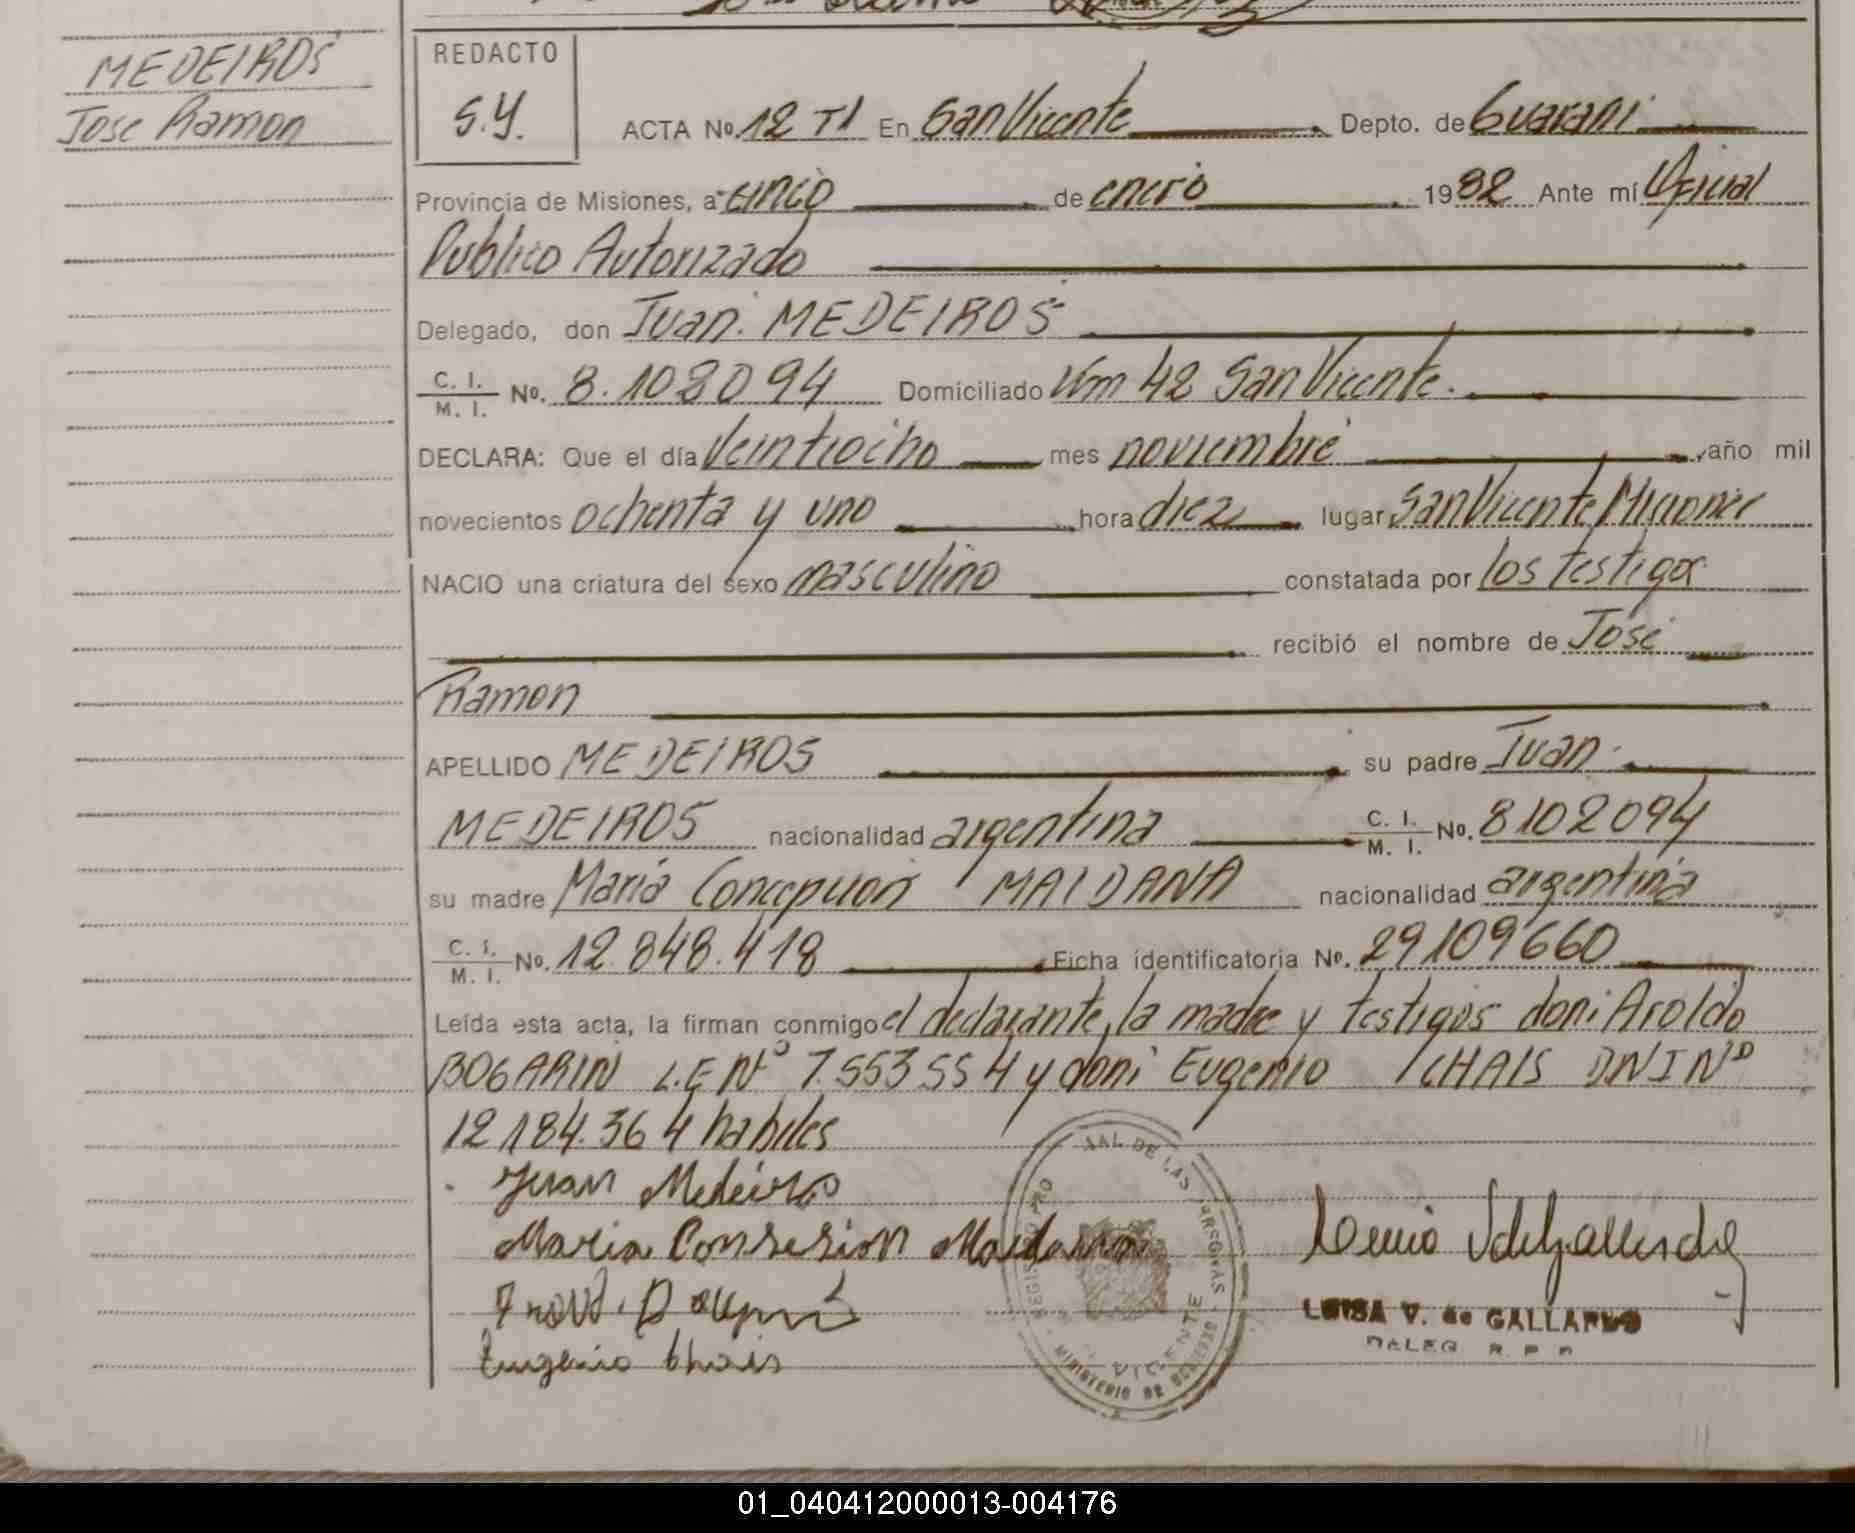 MEDEIROS
Jose Ramon
REDACTO
S.Y.
ACTA No. 12 TI En San Vicente Depto. de Guarani
Provincia de Misiones, a cinco de enero 1982 Ante mí Oficial
Publico Autorizado
Delegado, don Juan MEDEIROS
C. I. / M. I. No. 8.108094 Domiciliado Km 42 San Vicente.
DECLARA: Que el día Veintiocho mes noviembre año mil
novecientos ochenta y uno hora diez lugar San Vicente Misiones
NACIO una criatura del sexo masculino constatada por los testigos
recibió el nombre de José
Ramon
APELLIDO MEDEIROS su padre Juan
MEDEIROS nacionalidad argentina C. I. / M. I. No. 8102094
su madre Maria Concepcion MAIDANA nacionalidad argentina
C. I. / M. I. No. 12.848.418 Ficha identificatoria No. 29109660
Leída esta acta, la firman conmigo el declarante, la madre y testigos don: Aroldo
BOGARIN L.E Nº 7.553554 y don: Eugenio CHAIS DNI Nº
12184.364 habiles
Juan Medeiros
Maria Consesion Maidana
Eugenio Chais
LUISA V. de GALLARDO
DELEG R. P. P.
MINISTERIO DE GOBIERNO
VICENTE
01_040412000013-004176